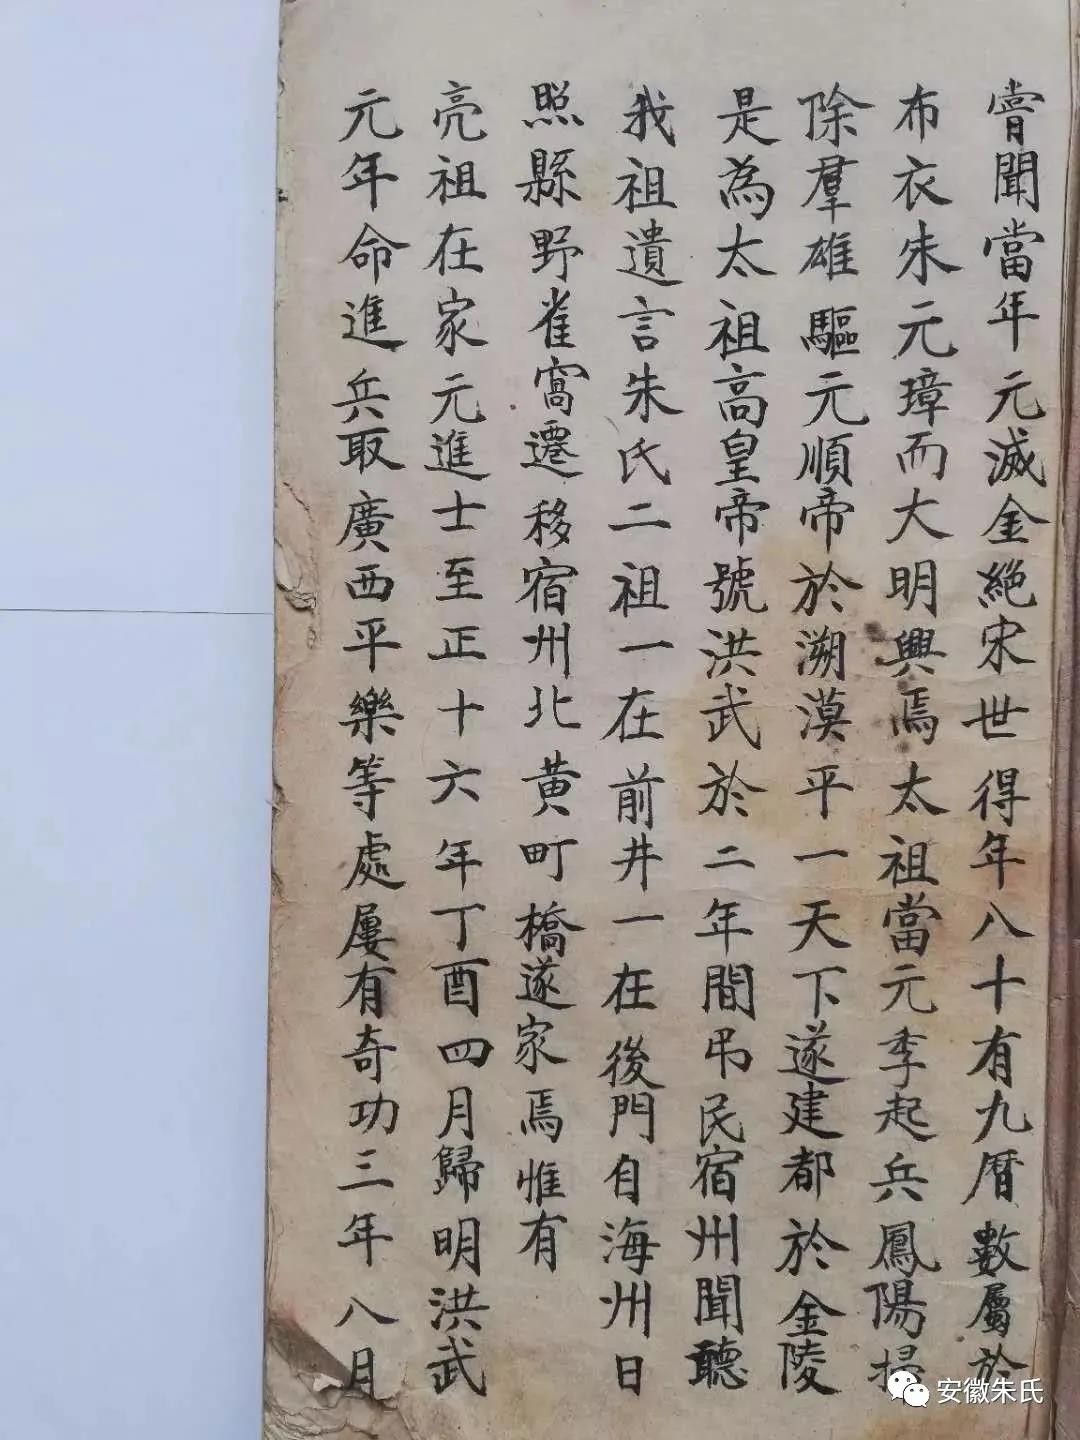 嘗聞當年元滅金絕宋世得年八十有九曆數屬於
布衣朱元璋而大明興焉太祖當元季起兵鳳陽掃
除羣雄驅元順帝於溯漠平一天下遂建都於金陵
是為太祖高皇帝號洪武於二年間弔民宿州聞聽
我祖遺言朱氏二祖一在前井一在後門自海州日
照縣野雀窩遷移宿州北黄町橋遂家焉惟有
亮祖在家元進士至正十六年丁酉四月歸明洪武
元年命進兵取廣西平樂等處屢有奇功三年八月
安徽朱氏